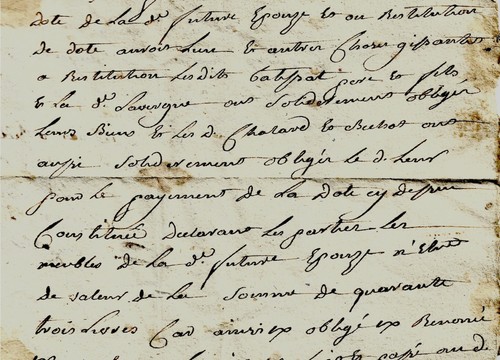 dote de la dt. future Epouze et ou Restitution
de dote auroit lieu et autres Choses gissantes
a Restitution lesdits pere et fils
et la dt. Lavergne ont solidairement obligés
Leurs Biens et les d. Chatard et ont
aussi solidairement obligés le d. Leur
pour le payement de la Dote cy dessus
Constituée Declarant les parties les
meubles de la dt. future Epouze n'Etre
de valeur de la somme de quarante
trois Livres Car ainsi ex obligé ex Renoncé